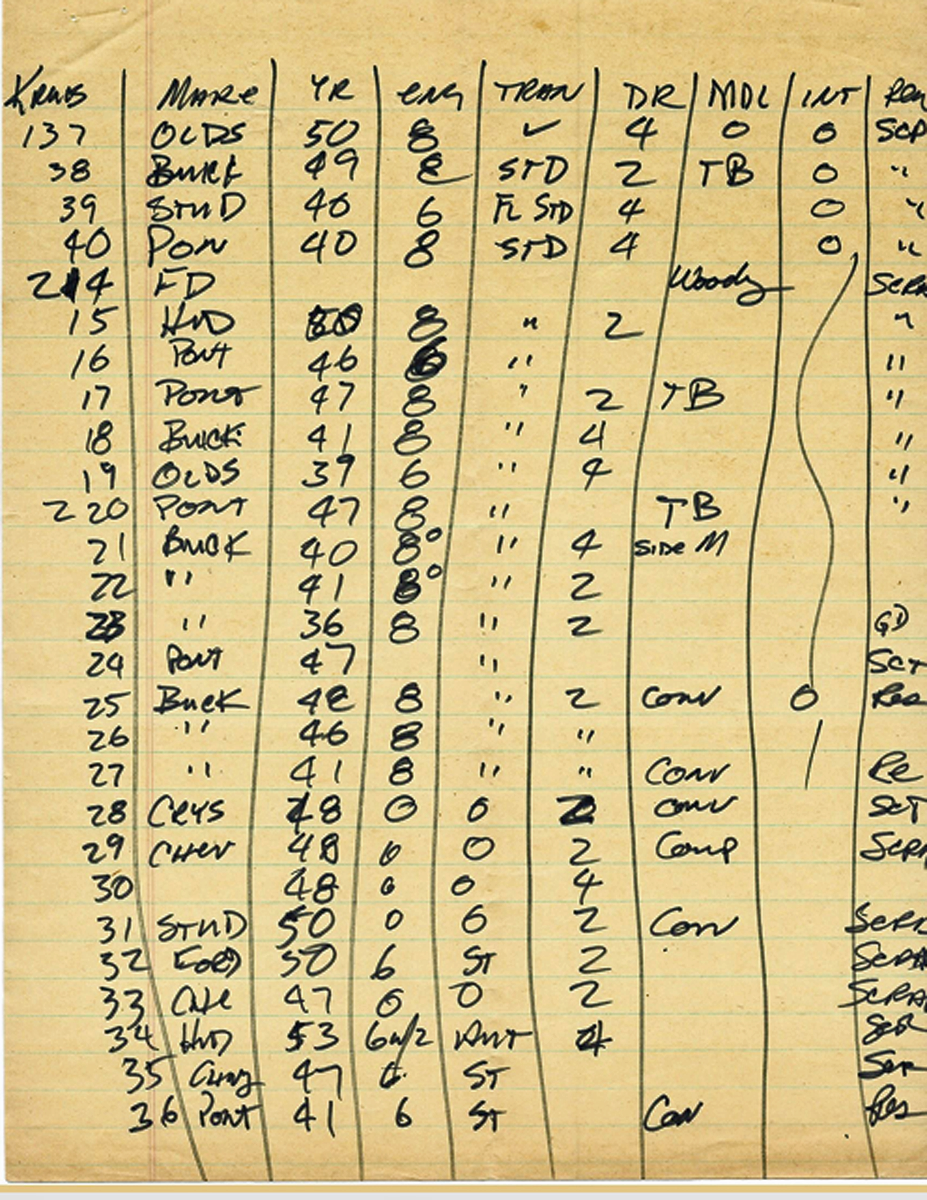 MAKE YR ENG TRAN DR MDL INT
137 OLDS 50 8 ✓ 4 0 0 SCR
38 BUICK 49 8 STD 2 TB 0 "
39 STUD 40 6 FL STD 4 0 "
40 PON 40 8 STD 4 0 "
214 FD Woody SCRA
15 HUD 50 8 " 2 "
16 PONT 46 6 " "
17 PONT 47 8 " 2 TB "
18 BUICK 41 8 " 4 "
19 OLDS 39 6 " 4 "
220 PONT 47 8 " TB "
21 BUICK 40 8° " 4 SIDE M
22 " 41 8° " 2
23 " 36 8 " 2 GD
24 PONT 47 " SCR
25 BUICK 48 8 " 2 CONV 0 Res
26 " 46 8 " "
27 " 41 8 " " CONV Re
28 CRYS 48 0 0 2 CONV SCT
29 CHEV 48 0 0 2 Coup SCRA
30 48 0 0 4
31 STUD 50 0 0 2 Conv SCRA
32 FORD 50 6 ST 2 SCRA
33 47 0 0 2 SCRA
34 HUD 53 6w/2 AUT 4 SCR
35 47 6 ST SCR
36 PONT 41 6 ST Con Res